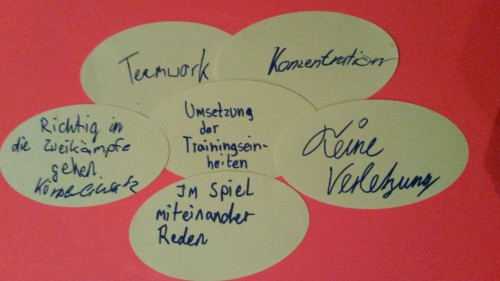 Teamwork
Konzentration
Richtig in
die Zweikämpfe
gehen.
Umsetzung
der
Trainingsein-
heiten
Keine
Verletzung
Im Spiel
miteinander
Reden